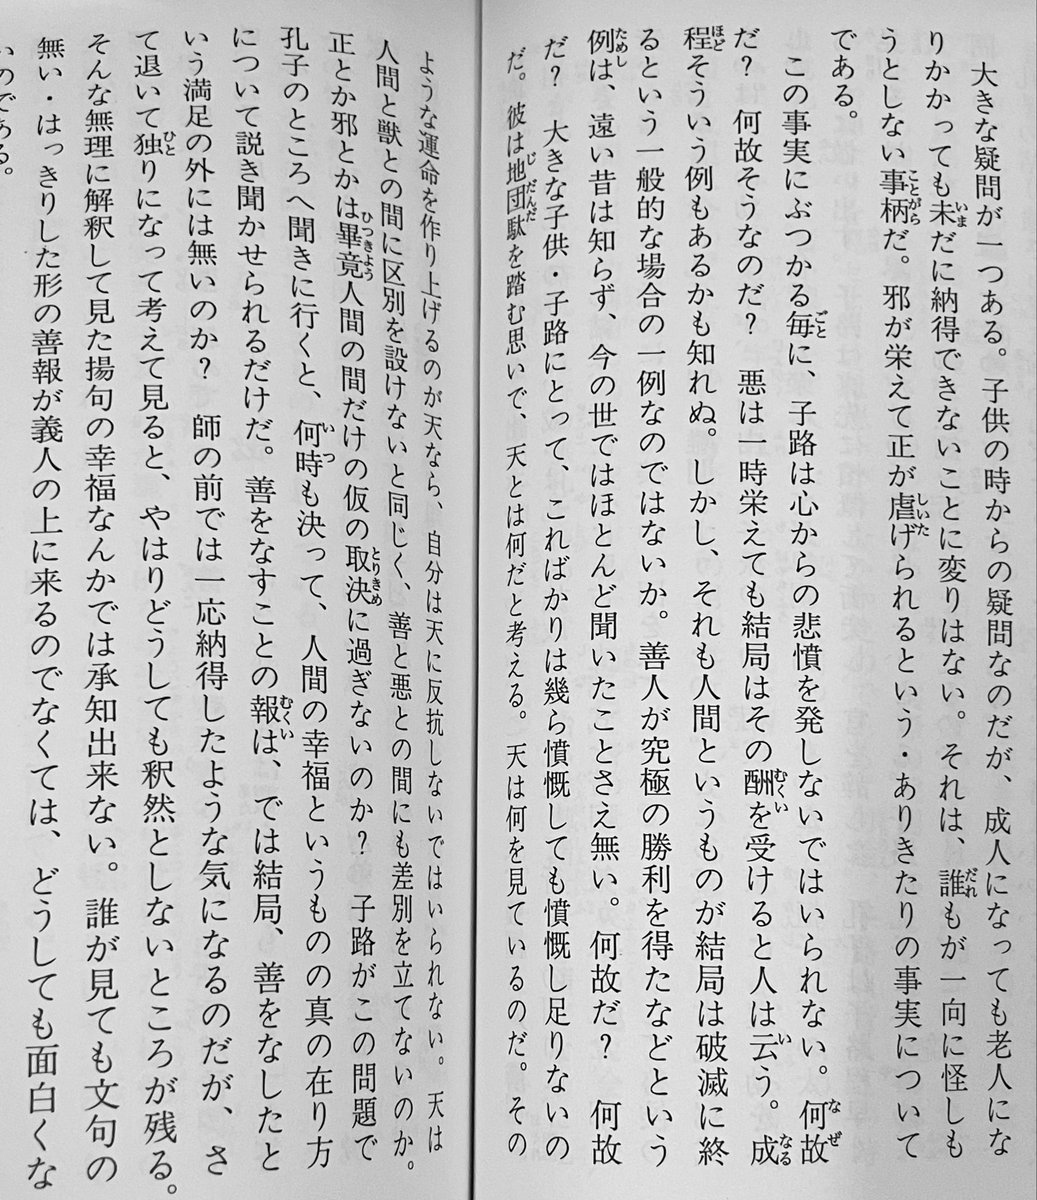 大きな疑問が一つある。子供の時からの疑問なのだが、成人になっても老人にな
りかかっても未だに納得できないことに変りはない。それは、誰もが一向に怪しも
うとしない事柄だ。邪が栄えて正が虐げられるという・ありきたりの事実について
である。
この事実にぶつかる毎に、子路は心からの悲憤を発しないではいられない。何故
だ？　何故そうなのだ？　悪は一時栄えても結局はその酬を受けると人は云う。成
程そういう例もあるかも知れぬ。しかし、それも人間というものが結局は破滅に終
るという一般的な場合の一例なのではないか。善人が究極の勝利を得たなどという
例は、遠い昔は知らず、今の世ではほとんど聞いたことさえ無い。何故だ？　何故
だ？　大きな子供・子路にとって、こればかりは幾ら憤慨しても憤慨し足りないの
だ。彼は地団駄を踏む思いで、天とは何だと考える。天は何を見ているのだ。その
ような運命を作り上げるのが天なら、自分は天に反抗しないではいられない。天は
人間と獣との間に区別を設けないと同じく、善と悪との間にも差別を立てないのか。
正とか邪とかは畢竟人間の間だけの仮の取決に過ぎないのか？　子路がこの問題で
孔子のところへ聞きに行くと、何時も決って、人間の幸福というものの真の在り方
について説き聞かせられるだけだ。善をなすことの報は、では結局、善をなしたと
いう満足の外には無いのか？　師の前では一応納得したような気になるのだが、さ
て退いて独りになって考えて見ると、やはりどうしても釈然としないところが残る。
そんな無理に解釈して見た揚句の幸福なんかでは承知出来ない。誰が見ても文句の
無い・はっきりした形の善報が義人の上に来るのでなくては、どうしても面白くな
いのである。